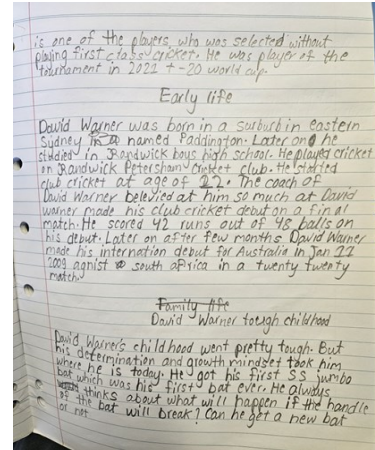 is one of the players who was selected without
playing first class cricket. He was player of the
tournament in 2021 t-20 world cup.
Early life
David Warner was born in a surburb in eastern
Sydney named Paddington. Later on he
studied in Randwick boys high school. He played cricket
on Randwick Petersham Cricket club. He started
club cricket at age of 22. The coach of
David Warner belevied at him so much at David
warner made his club cricket debut on a final
match. He scored 42 runs out of 48 balls on
his debut. Later on after few months David Warner
made his internation debut for Australia in Jan 11
2009 agnist south africa in a twenty twenty
match.
Family life
David Warner tough childhood
David Warner's childhood went pretty tough. But
his determination and growth mindset took him
where he is today. He got his first SS jumbo
bat which was his first bat ever. He always
thinks about what will happen if the handle
of the bat will break? Can he get a new bat
or not